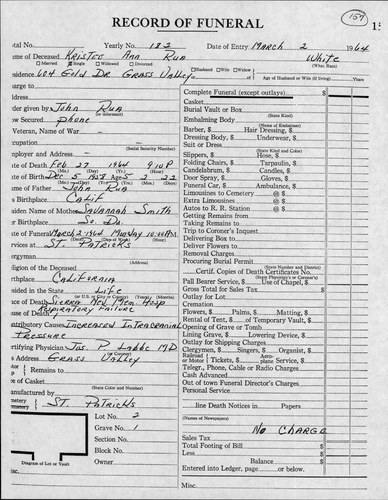 RECORD OF FUNERAL
157
tal No. Yearly No. 182 Date of Entry March 2 1964
me of Deceased Kristee Ann Rua White
Married Single Widowed Divorced Husband Wife Widow (What Race)
esidence 604 Gold Dr. Grass Valley Age of Husband or Wife (if living) Years
arge to
der given by John Rua
w Secured Phone
Veteran, Name of War
cupation
(Social Security Number)
ployer and Address
te of Death Feb 27 1964 9:10 P
te of Birth Dec 5 1958 Age 5 2 22
me of Father John Rua
s Birthplace Calif
iden Name of Mother Savannah Smith
s Birthplace So. Da.
te of Funeral March 2 1964 Monday 10:00 AM
rvices at St. Patricks
ergyman
ligion of the Deceased
rthplace California
sided in the State Life
ce of Death Sierra Nev Mem. Hosp
use of Death Respiratory Failure
ntributory Causes Increased Intracranial
Pressure
rtifying Physician Jas. P. Labbe MD
s Address Grass Valley
or Remains to
ze of Casket
(State Color and Number)
anufactured by
metery St. Patricks
Lot No. 2
Grave No. 1
Section No.
Block No.
Owner
Diagram of Lot or Vault
isc.
Complete Funeral (except outlays) $
Casket
Burial Vault or Box
(State Kind)
Embalming Body
(State Kind)
Barber, $ Hair Dressing, $
Dressing Body, $ Underwear, $
Suit or Dress
(State Kind and Color)
Slippers, $ Hose, $
Folding Chairs, $ Tarpaulin, $
Candelabrum, $ Candles, $
Door Spray, $ Gloves, $
Funeral Car, $ Ambulance, $
Limousines to Cemetery @ $
Extra Limousines @ $
Autos to R. R. Station @ $
Getting Remains from
Taking Remains to
Trip to Coroner's Inquest
Delivering Box to
Deliver Flowers to
Removal Charges
Procuring Burial Permit
(State Number and District)
Certif. Copies of Death Certificates No.
Pall Bearer Service, $ Use of Chapel, $
Gross Total for Sales Tax $
Outlay for Lot
Cremation
Flowers, $ Palms, $ Matting, $
Rental of Tent, $ of Temporary Vault, $
Opening of Grave or Tomb
Lining Grave, $ Lowering Device, $
Outlay for Shipping Charges
Clergymen, $ Singers, $ Organist, $
Railroad or Motor Tickets, $ Aeroplane Service, $
Telegr., Phone, Cable or Radio Charges
Cash Advanced
Out of town Funeral Director's Charges
Personal Service
line Death Notices in Papers
(Names of Newspapers)
No Charge
Sales Tax
Total Footing of Bill $
Less $
Balance $
Entered into Ledger, page or below.
Misc.